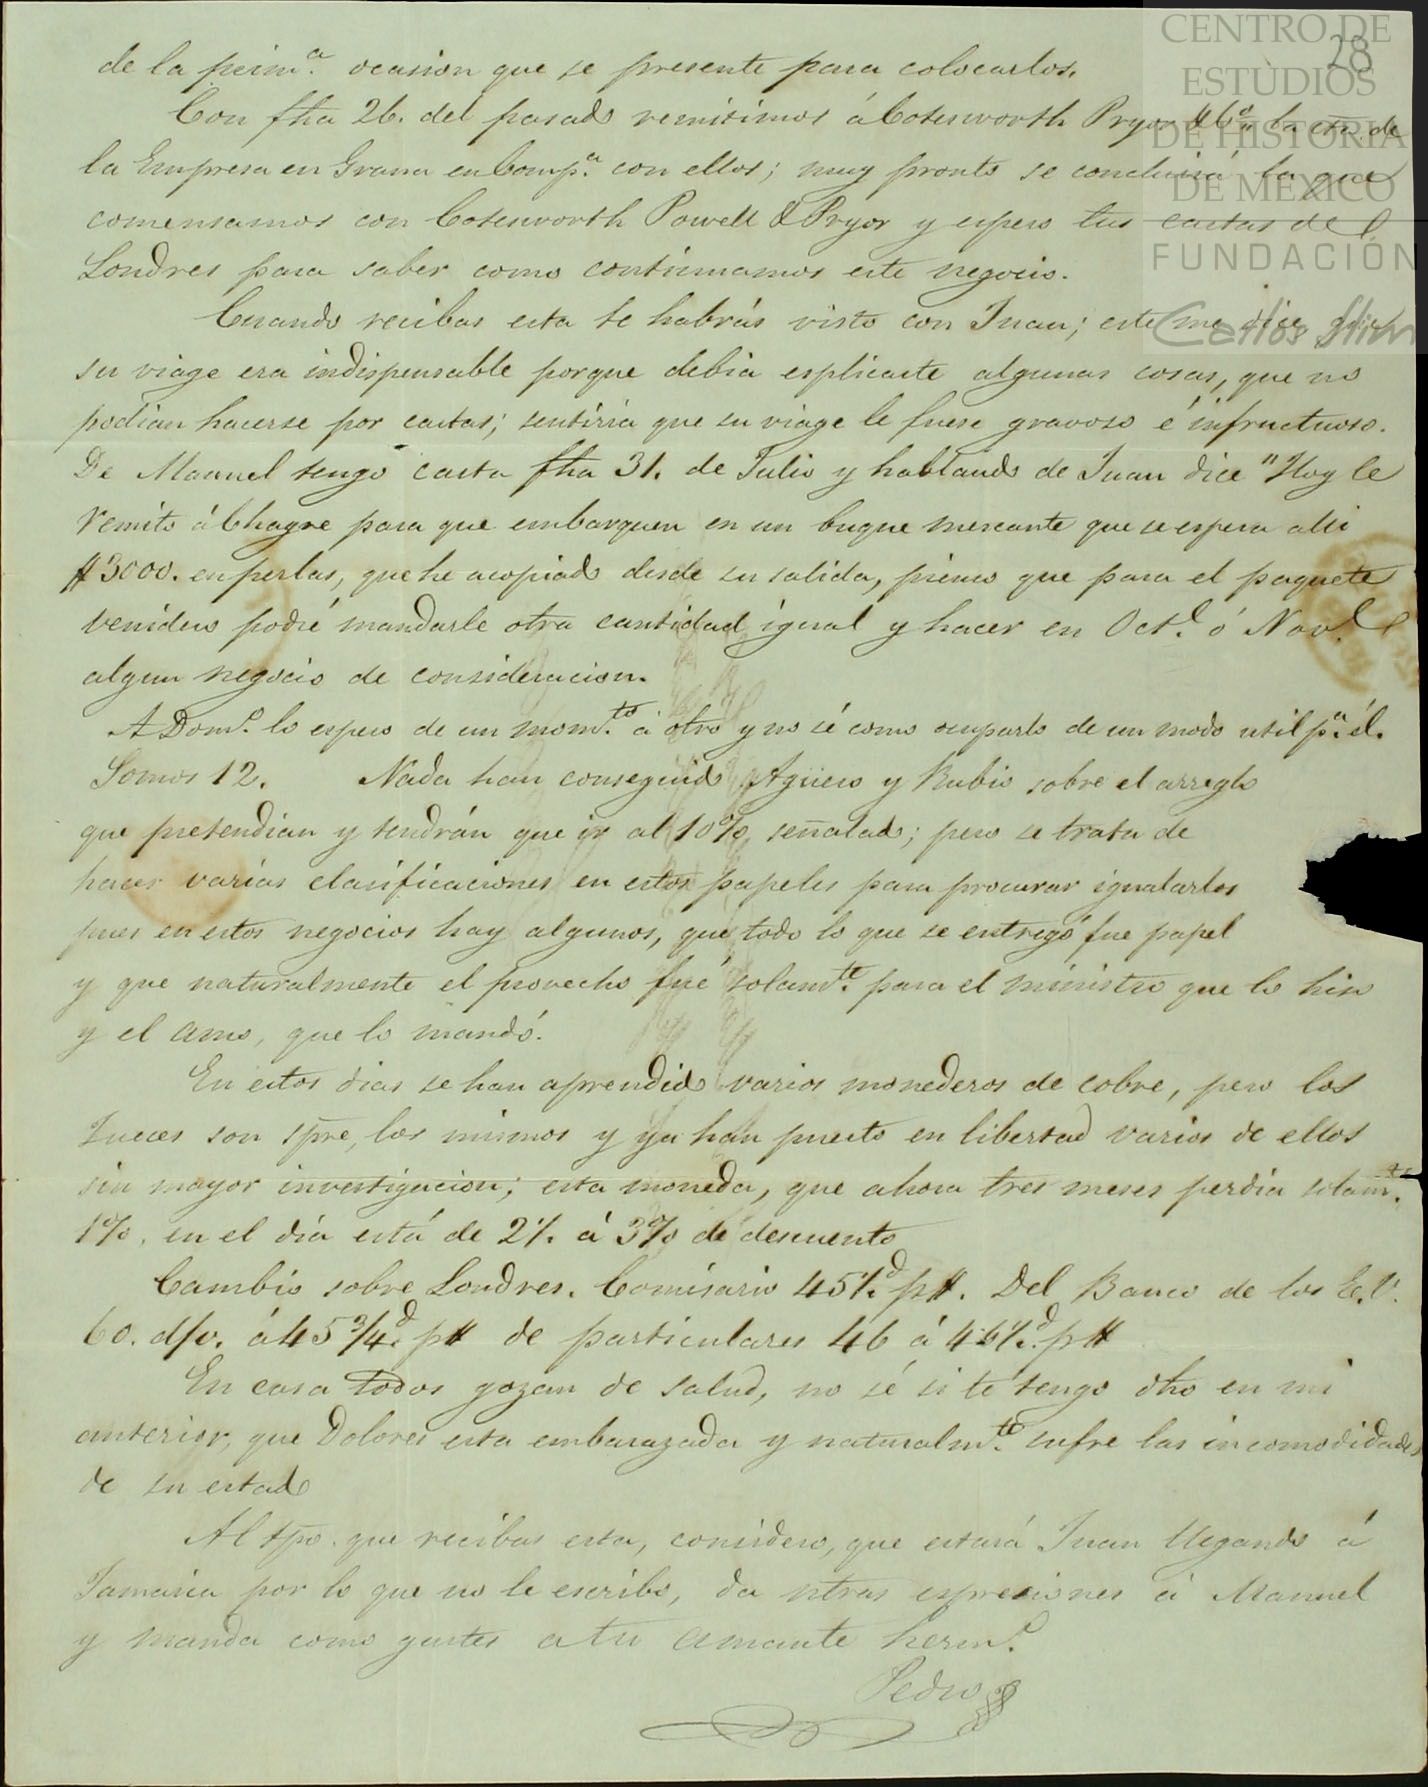 CENTRO DE
ESTÙDIOS
DE HISTORIA
DE MÉXICO
FUNDACIÓN
Carlos Slim
28
de la prim.ª ocasion que se presente para colocarlos.
Con fha 26. del pasado remitimos á Cotesworth Pryor & Cº la cta. de
la Empresa en Grana en Comp.ª con ellos; muy pronto se concluirá la que
comensamos con Cotesworth Powell & Pryor y espero tus cartas de
Londres para saber como continuamos este negocio.
Cuando recibas esta te habrás visto con Juan; este me dice que
su viage era indispensable porque debia esplicarte algunas cosas, que no
podian hacerse por cartas; sentiria que su viage le fuese gravoso é infructuoso.
De Manuel tengo carta fha 31. de Julio y hablando de Juan dice "Hoy le
remito á Chagre para que embarquen en un buque mercante que se espera alli
$3000. en perlas, que he acopiado desde su salida, pienso que para el paquete
venidero podré mandarle otra cantidad igual y hacer en Oct.e ó Nov.e
algun negocio de consideracion.
A Dom.º lo espero de un mom.to á otro y no sé como ocuparlo de un modo util p.ª él.
Somos 12. Nada han conseguido Agüero y Rubio sobre el arreglo
que pretendian y tendrán que ir al 10% señalado; pero se trata de
hacer varias clasificaciones en estos papeles para procurar igualarlos
pues en estos negocios hay algunos, que todo lo que se entregó fue papel
y que naturalmente el provecho fué solam.te para el ministro que lo hizo
y el amo, que lo mandó.
En estos dias se han aprendido varios monederos de cobre, pero los
Jueces son spre, los mismos y ya han puesto en libertad varios de ellos
sin mayor investigacion; esta moneda, que ahora tres meses perdia solam.te
1%. en el día está de 2%. á 3% de descuento
Cambio sobre Londres. Comisario 45½.d p$. Del Banco de los E.U.
60. d/v. á 45¾.d p$ de particulares 46 á 46½.d p$
En casa todos gozan de salud, no sé si te tengo dho en mi
anterior, que Dolores esta embarazada y naturalm.te sufre las incomodidades
de su estado
Al tpo. que recibas esta, considero, que estará Juan llegando á
Jamaica por lo que no le escribo, da ntras espresiones á Manuel
y manda como gustes a tu amante herm.º
Pedro